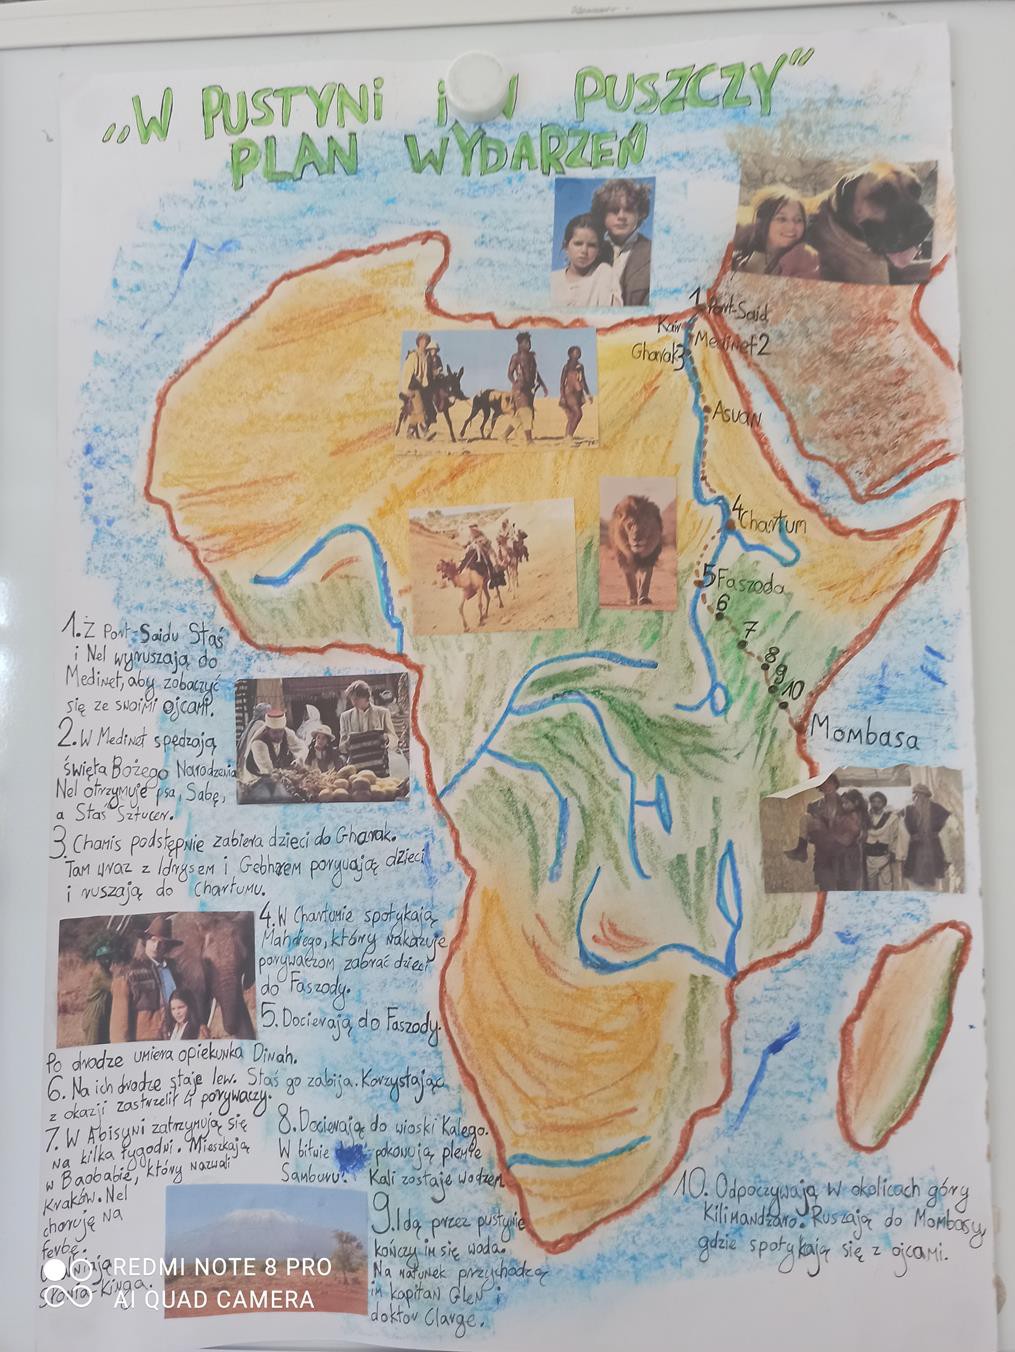 „W PUSTYNi i W PUSZCZY”
PLAN WYDARZEŃ
1 Port-Said
Kair
Medinet 2
Gharak 3
Asuan
4 Chartum
5 Faszoda
6
7
8
9
10
Mombasa
1. Z Port-Saidu Staś
i Nel wyruszają do
Medinet, aby zobaczyć
się ze swoimi ojcami.
2. W Medinet spędzają
święta Bożego Narodzenia
Nel otrzymuje psa, Sabę,
a Staś Sztucer.
3. Chamis podstępnie zabiera dzieci do Gharak.
Tam wraz z Idrysem i Gebhrem porywają dzieci
i ruszają do Chartumu.
4. W Chartumie spotykają
Mahdiego, który nakazuje
porywaczom zabrać dzieci
do Faszody.
5. Docierają do Faszody.
Po drodze umiera opiekunka Dinah.
6. Na ich drodze staje lew. Staś go zabija. Korzystając
z okazji zastrzelił 4 porywaczy.
7. W Abisyni zatrzymują się
na kilka tygodni. Mieszkają
w Baobabie, który nazwali
Kraków. Nel
choruję na
febrę.
słonia-Kinga.
8. Docierają do wioski Kalego.
W bitwie pokonują plemię
Samburu. Kali zostaje wodzem
9. Idą przez pustynię
kończy im się woda.
Na ratunek przychodzą
im kapitan Glen i
doktor Clarge.
10. Odpoczywają w okolicach góry
Kilimandżaro. Ruszają do Mombasy,
gdzie spotykają się z ojcami.
REDMI NOTE 8 PRO
AI QUAD CAMERA